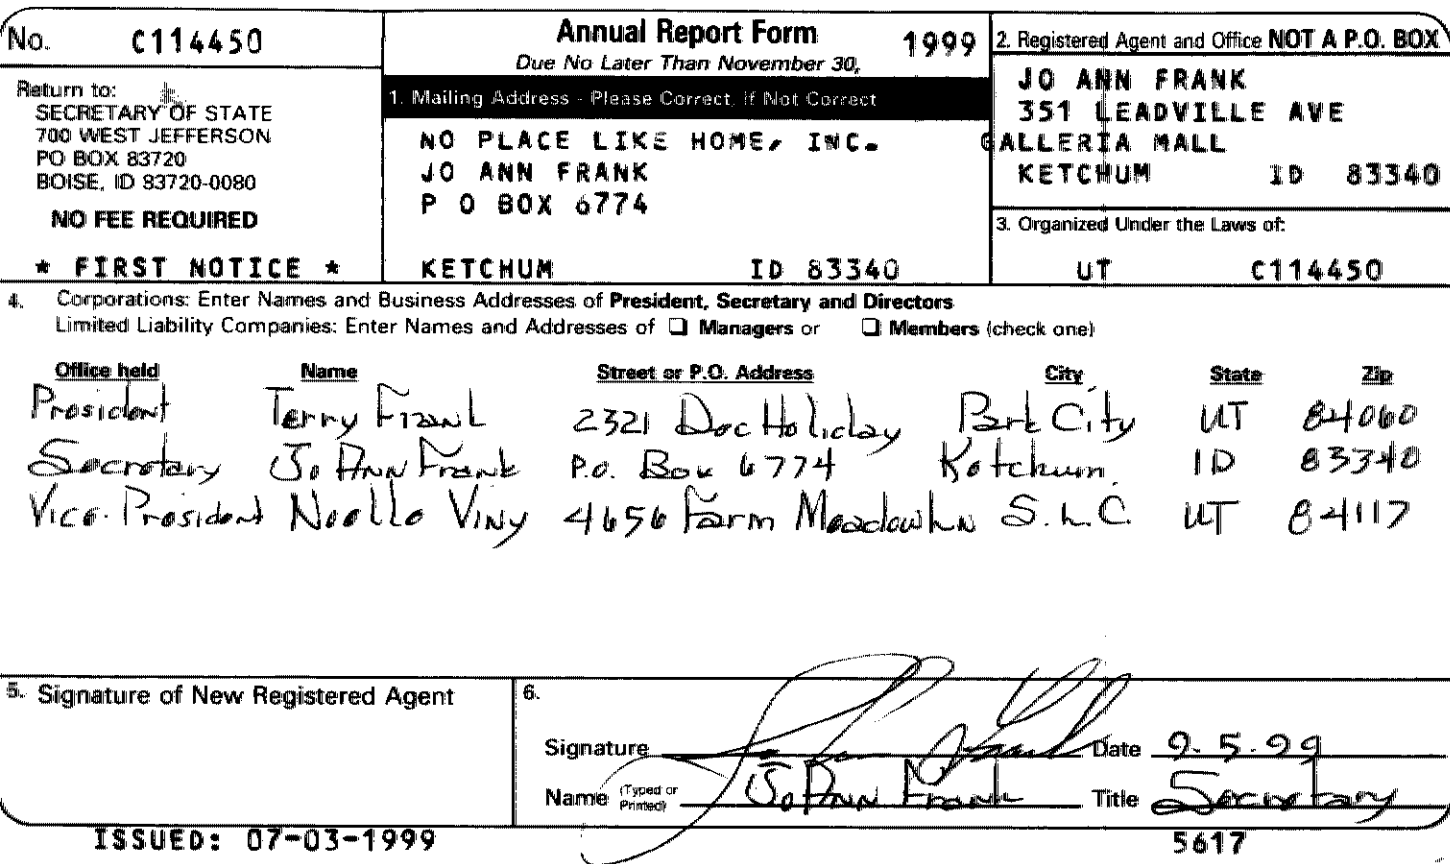 No. C114450
Return to:
SECRETARY OF STATE
700 WEST JEFFERSON
PO BOX 83720
BOISE, ID 83720-0080
NO FEE REQUIRED
* FIRST NOTICE *
Annual Report Form 1999
Due No Later Than November 30,
1. Mailing Address - Please Correct, If Not Correct
NO PLACE LIKE HOME, INC.
JO ANN FRANK
P O BOX 6774
KETCHUM ID 83340
2. Registered Agent and Office NOT A P.O. BOX
JO ANN FRANK
351 LEADVILLE AVE
GALLERIA MALL
KETCHUM ID 83340
3. Organized Under the Laws of:
UT C114450
4. Corporations: Enter Names and Business Addresses of President, Secretary and Directors
Limited Liability Companies: Enter Names and Addresses of ☐ Managers or ☐ Members (check one)
Office held Name Street or P.O. Address City State Zip
President Terry Frank 2321 Doc Holiday Park City UT 84060
Secretary Jo Ann Frank P.O. Box 6774 Ketchum ID 83340
Vice-President Noelle Viny 4656 Farm Meadow Ln S.L.C. UT 84117
5. Signature of New Registered Agent
6.
Signature Date 9.5.99
Name (Typed or Printed) Jo Ann Frank Title Secretary
ISSUED: 07-03-1999 5617